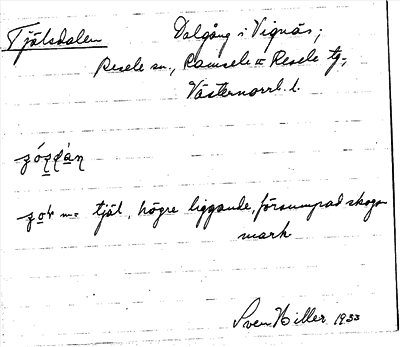 Tjälsdalen
Dalgång i Vignäs;
Resele sn., Ramsele o Resele tg.,
Västernorrl. l.
m = tjäl, högre liggande, försumpad skogs-
mark
Sven Hiller 1933